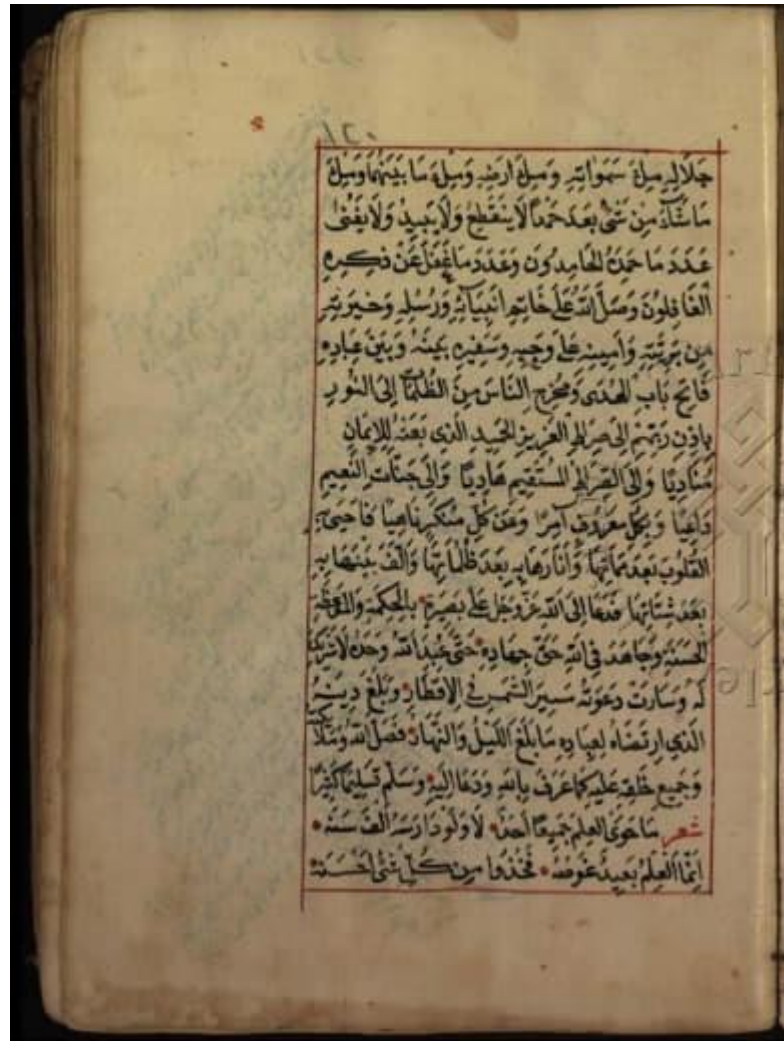 ١٢٠
جَلَالِهِ مِلْءَ سَمَوَاتِهِ وَمِلْءَ اَرْضِهِ وَمِلْءَ مَا بَيْنَهُمَا وَمِلْءَ
مَا شَآءَ مِنْ شَىْءٍ بَعْدَ حَمْدًا لَا يَنْقَطِعُ وَلَا يَبِيدُ وَلَا يَفْنٰى
عَدَدَ مَا حَمِدَهُ الْحَامِدُونَ وَعَدَدَ مَا غَفَلَ عَنْ ذِكْرِهِ
الْغَافِلُونَ وَصَلَّى اللّٰهُ عَلَى خَاتَمِ اَنْبِيَآئِهِ وَرُسُلِهِ وَخِيَرَتِهِ
مِنْ بَرِيَّتِهِ وَاَمِينِهِ عَلَى وَحْيِهِ وَسَفِيرِهِ بَيْنَهُ وَبَيْنَ عِبَادِهِ
فَاتِحِ بَابِ الْهُدَى وَمُخْرِجِ النَّاسِ مِنَ الظُّلُمَاتِ اِلَى النُّورِ
بِاِذْنِ رَبِّهِمْ اِلَى صِرَاطِ الْعَزِيزِ الْحَمِيدِ الَّذِى بَعَثَهُ لِلْاِيمَانِ
مُنَادِيًا وَاِلَى الصِّرَاطِ الْمُسْتَقِيمِ هَادِيًا وَاِلَى جَنَّاتِ النَّعِيمِ
دَاعِيًا وَبِكُلِّ مَعْرُوفٍ آمِرًا وَعَنْ كُلِّ مُنْكَرٍ نَاهِيًا فَاَحْيَى بِهِ
الْقُلُوبَ بَعْدَ مَمَاتِهَا وَاَنَارَهَا بِهِ بَعْدَ ظُلُمَاتِهَا وَاَلَّفَ بَيْنَهَا بِهِ
بَعْدَ شَتَاتِهَا فَدَعَا اِلَى اللّٰهِ عَزَّ وَجَلَّ عَلَى بَصِيرَةٍ بِالْحِكْمَةِ وَالْمَوْعِظَةِ
الْحَسَنَةِ وَجَاهَدَ فِى اللّٰهِ حَقَّ جِهَادِهِ حَتَّى عُبِدَ اللّٰهُ وَحْدَهُ لَا شَرِيكَ
لَهُ وَسَارَتْ دَعْوَتُهُ مَسِيرَ الشَّمْسِ فِى الْاَقْطَارِ وَبَلَغَ دِينُهُ
الَّذِى ارْتَضَاهُ لِعِبَادِهِ مَا بَلَغَ اللَّيْلُ وَالنَّهَارُ فَصَلَّى اللّٰهُ وَمَلَائِكَتُهُ
وَجَمِيعُ خَلْقِهِ عَلَيْهِ كَمَا عَرَّفَ بِاللّٰهِ وَدَعَا اِلَيْهِ وَسَلَّمَ تَسْلِيمًا كَثِيرًا
شعر مَا حَوَى الْعِلْمَ جَمِيعًا اَحَدٌ لَا وَلَوْ دَارَسَهُ اَلْفَ سَنَةْ
اِنَّمَا الْعِلْمُ بَعِيدٌ غَوْصُهُ فَخُذُوا مِنْ كُلِّ شَىْءٍ اَحْسَنَهْ